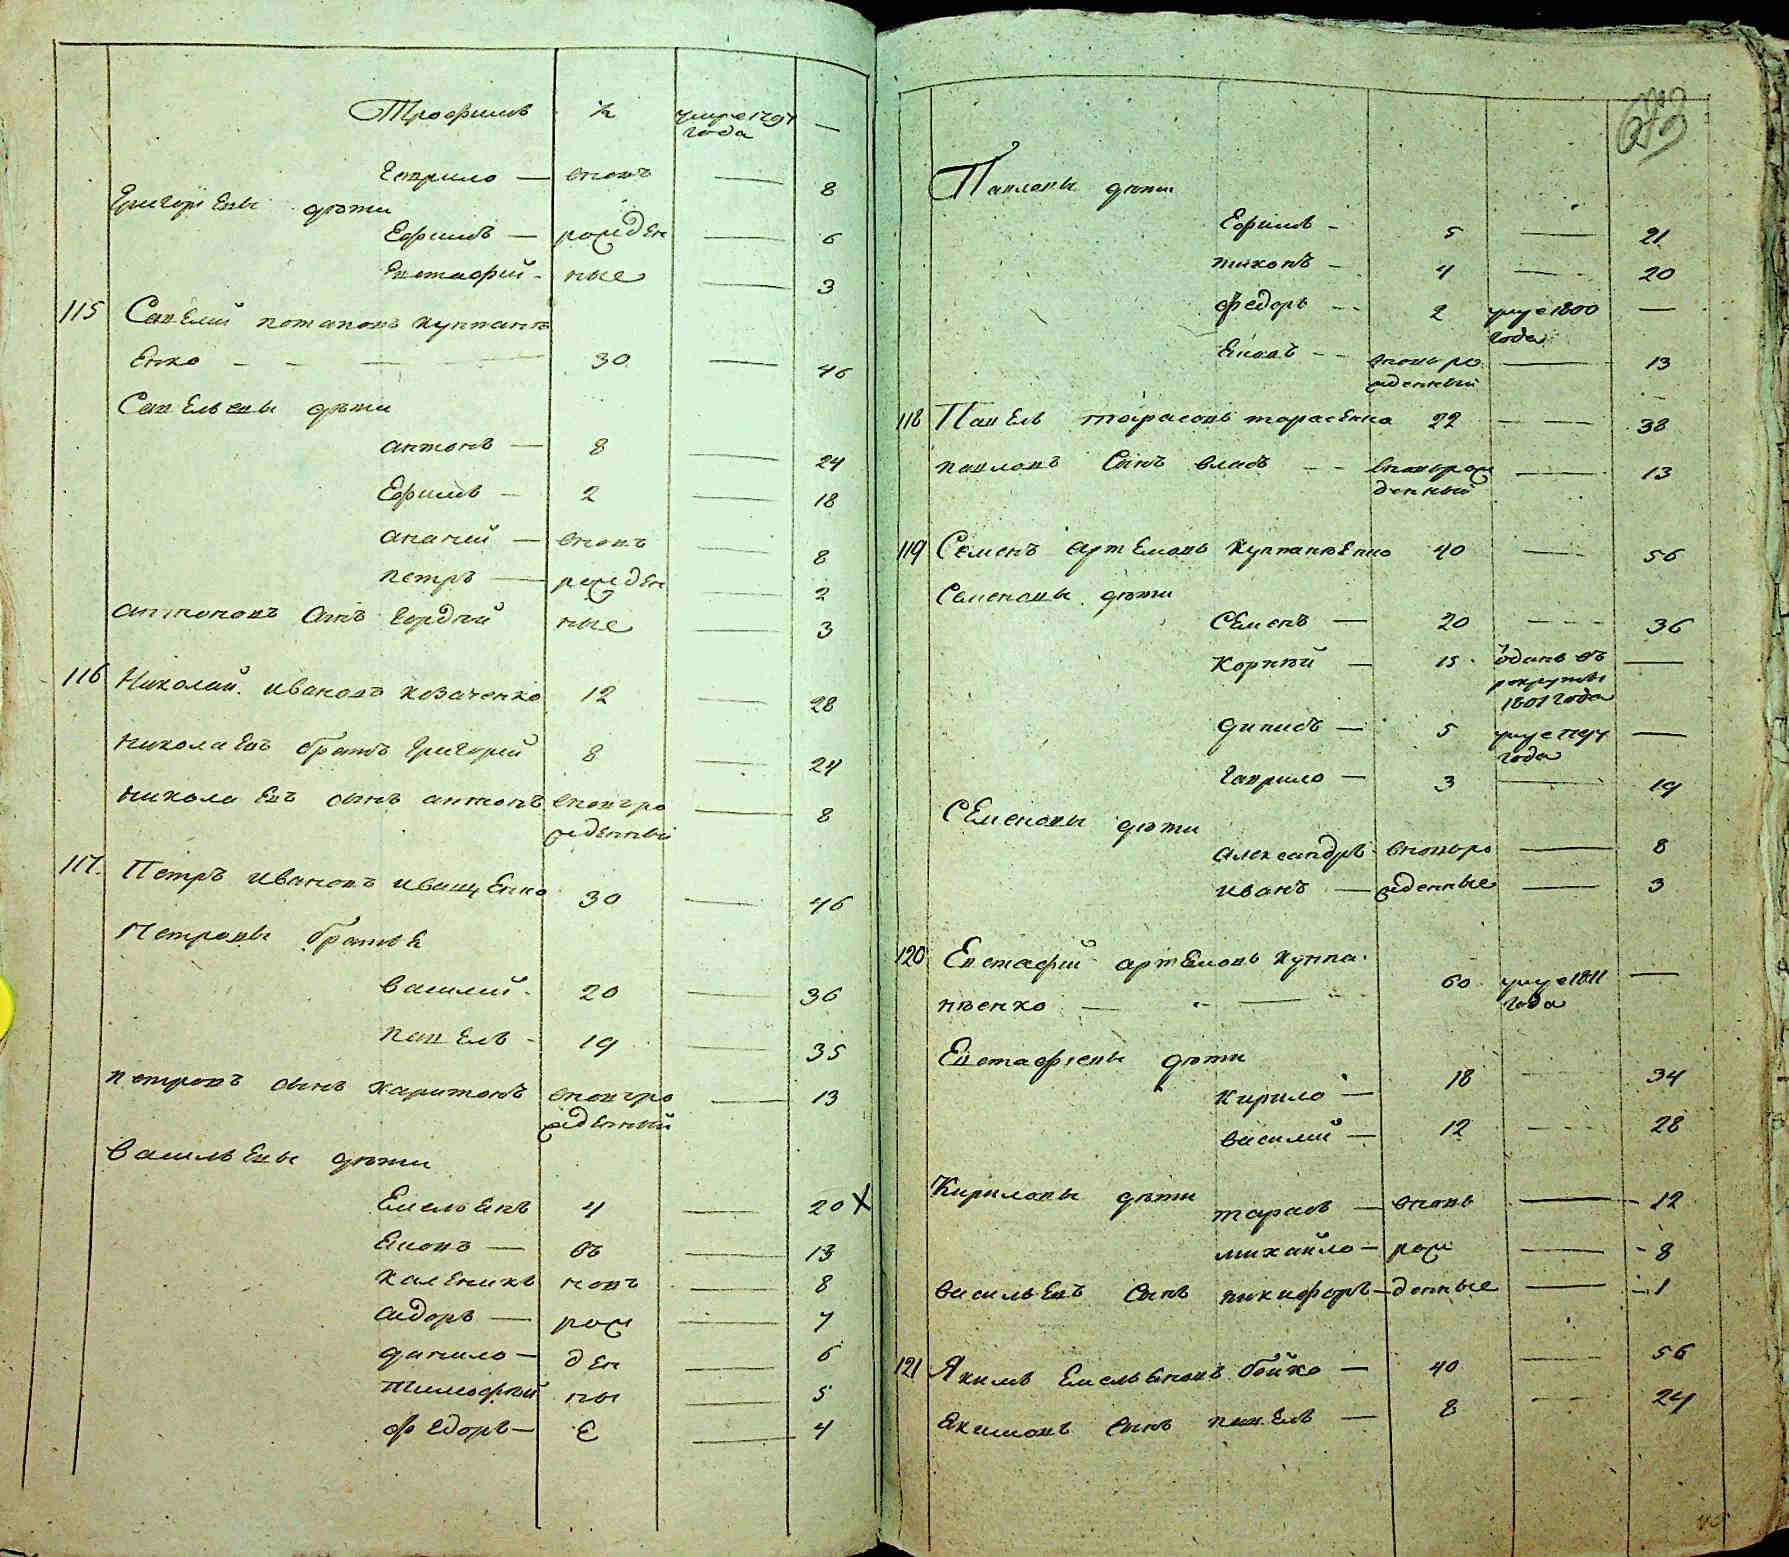 Трофимъ ½ умре 1797
года —
Гаврило — вновь — 8
Григорьевы дѣти
Ефимъ — рожден — 6
Евстафий — ные — 3
115 Савелий потаповъ куппанъ
Енко — — — — 30 — 46
Савельевы дѣти
антонъ — 8 — 24
Ефимъ — 2 — 18
ананий — вновь — 8
петръ — рожден — 2
антоновъ сынъ Гордѣй ные — 3
116 Николай ивановъ козаченко 12 — 28
николаевъ братъ григорий 8 — 24
николаевъ сынъ антонъ вновьро — 8
жденный
117. Петръ ивановъ иващенко 30 — 46
Петровы братья
василий 20 — 36
павелъ - 19 — 35
петровъ сынъ харитонъ вновьро — 13
жденный
васильевы дѣти
Емельянъ 4 — 20 X
Яковъ — въ — 13
каленикъ новъ — 8
сидоръ — рож — 7
данило — ден — 6
тимофѣй ны — 5
федоръ — е — 4
Павловы дѣти
Ефимъ - 5 — 21
никонъ - 4 — 20
федоръ - - 2 умре 1800 —
года
Яковъ - - вновь ро — 13
жденный
118 Павелъ тарасовъ тарасенко 22 — — 38
павловъ сынъ власъ - - вновьрож — 13
денный
119 Семенъ артемовъ куппанѣенко 40 — 56
Семеновы дѣти
Семенъ — 20 - - - 36
корнѣй — 15 Отданъ въ —
рекруты
1801 года
динисъ — 5 умре 1797 —
года
гаврило — 3 — 19
Семеновы дѣти
александръ - вновьро — 8
иванъ — жденные — 3
120 Евстафий артемовъ куппа-
нѣенко — - — - 60 умре 1811 —
года
Евстафиевы дѣти
кирило — 18 - - - 34
василий — 12 - - - 28
Кириловы дѣти
тарасъ — вновь — 12
михайло — рож — 8
васильевъ сынъ никифоръ — денные — 1
121 Якимъ Емельяновъ бойко — 40 — 56
Якимовъ сынъ павелъ — 8 - - - 24